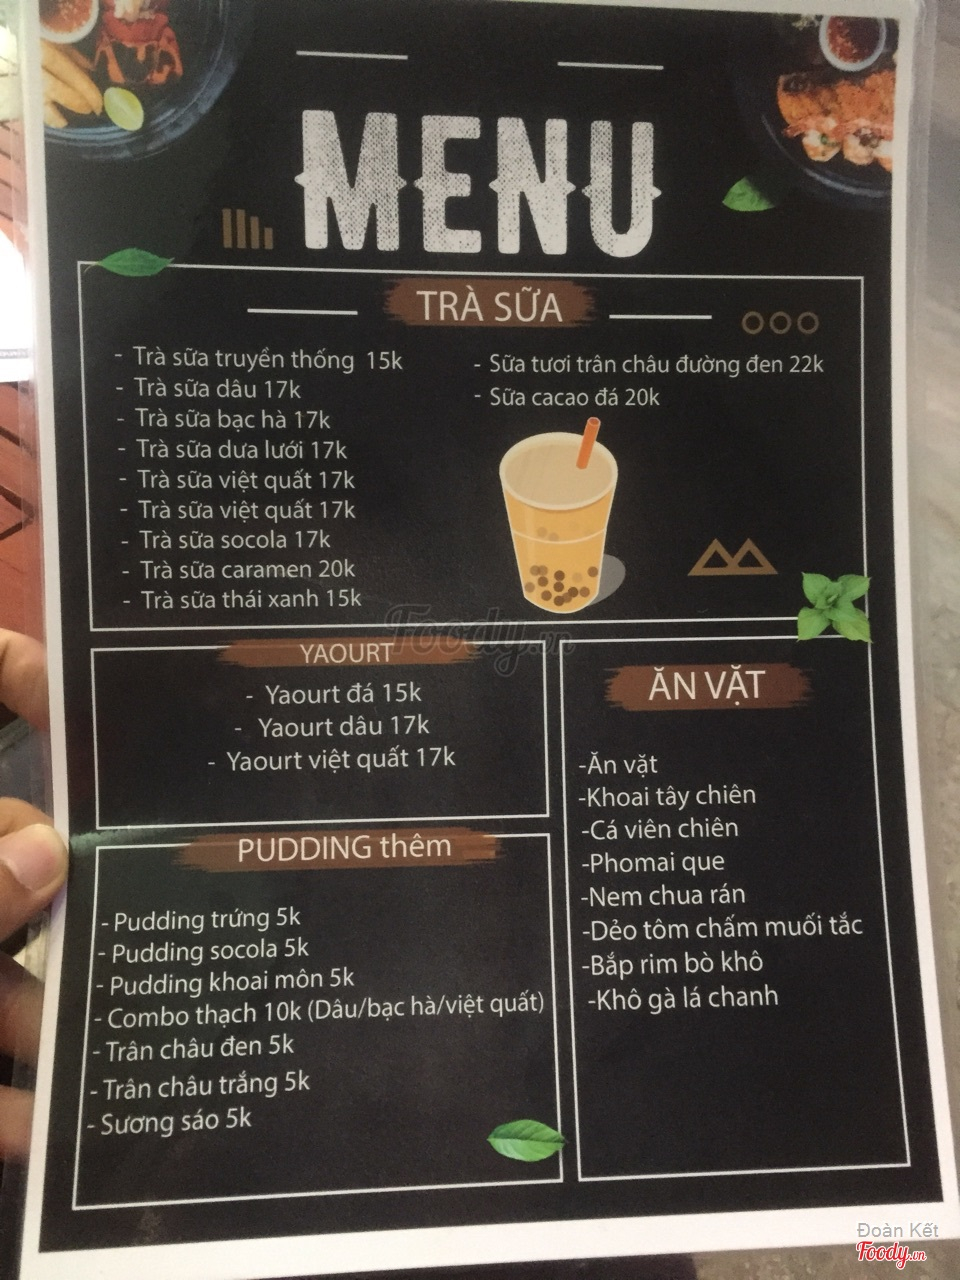 MENU
TRÀ SỮA
- Trà sữa truyền thống 15k
- Trà sữa dâu 17k
- Trà sữa bạc hà 17k
- Trà sữa dưa lưới 17k
- Trà sữa việt quất 17k
- Trà sữa việt quất 17k
- Trà sữa socola 17k
- Trà sữa caramen 20k
- Trà sữa thái xanh 15k
- Sữa tươi trân châu đường đen 22k
- Sữa cacao đá 20k
Foody.vn
YAOURT
- Yaourt đá 15k
- Yaourt dâu 17k
- Yaourt việt quất 17k
PUDDING thêm
- Pudding trứng 5k
- Pudding socola 5k
- Pudding khoai môn 5k
- Combo thạch 10k (Dâu/bạc hà/việt quất)
- Trân châu đen 5k
- Trân châu trắng 5k
- Sương sáo 5k
ĂN VẶT
-Ăn vặt
-Khoai tây chiên
-Cá viên chiên
-Phomai que
-Nem chua rán
-Dẻo tôm chấm muối tắc
-Bắp rim bò khô
-Khô gà lá chanh
Đoàn Kết
Foody.vn